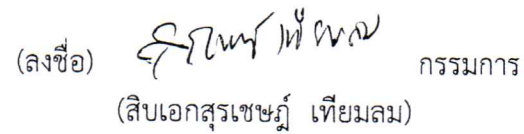 (ลงชื่อ) กรรมการ
(สิบเอกสุรเชษฎ์ เทียมลม)